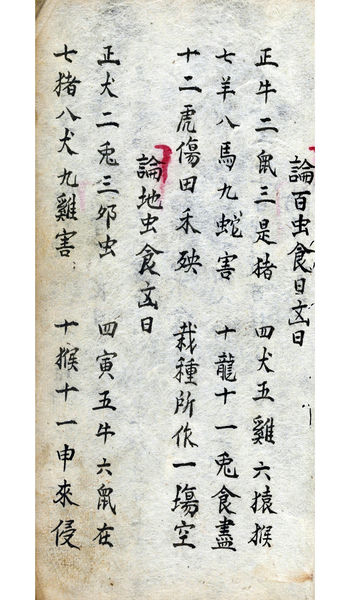 論百虫食日凶日
正牛二鼠三是猪 四犬五雞六猿猴
七羊八馬九蛇害 十龍十一兎食盡
十二虎傷田禾殃 栽種所作一塲空
論地虫食凶日
正犬二兎三夘虫 四寅五牛六鼠在
七猪八犬九雞害 十猴十一申來侵